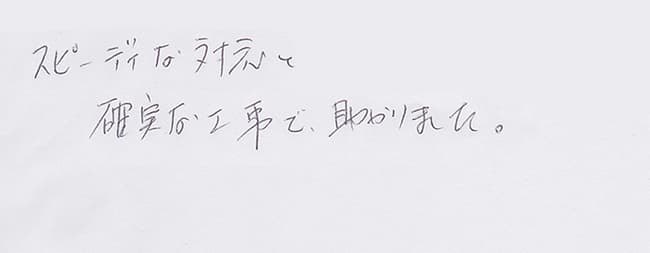 スピーディな対応と
確実な工事で、助かりました。